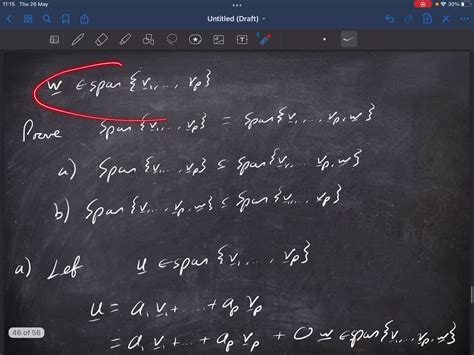 11:15 Thu 26 May
30%
Untitled (Draft)
w ∈ span {v₁, ..., vₚ}
Prove span {v₁, ..., vₚ} = span {v₁, ..., vₚ, w}
a) span {v₁, ..., vₚ} ⊆ span {v₁, ..., vₚ, w}
b) span {v₁, ..., vₚ, w} ⊆ span {v₁, ..., vₚ}
a) Let u ∈ span {v₁, ..., vₚ}
u = a₁ v₁ + ... + aₚ vₚ
= a₁ v₁ + ... + aₚ vₚ + 0 w ∈ span {v₁, ..., vₚ, w}
46 of 56